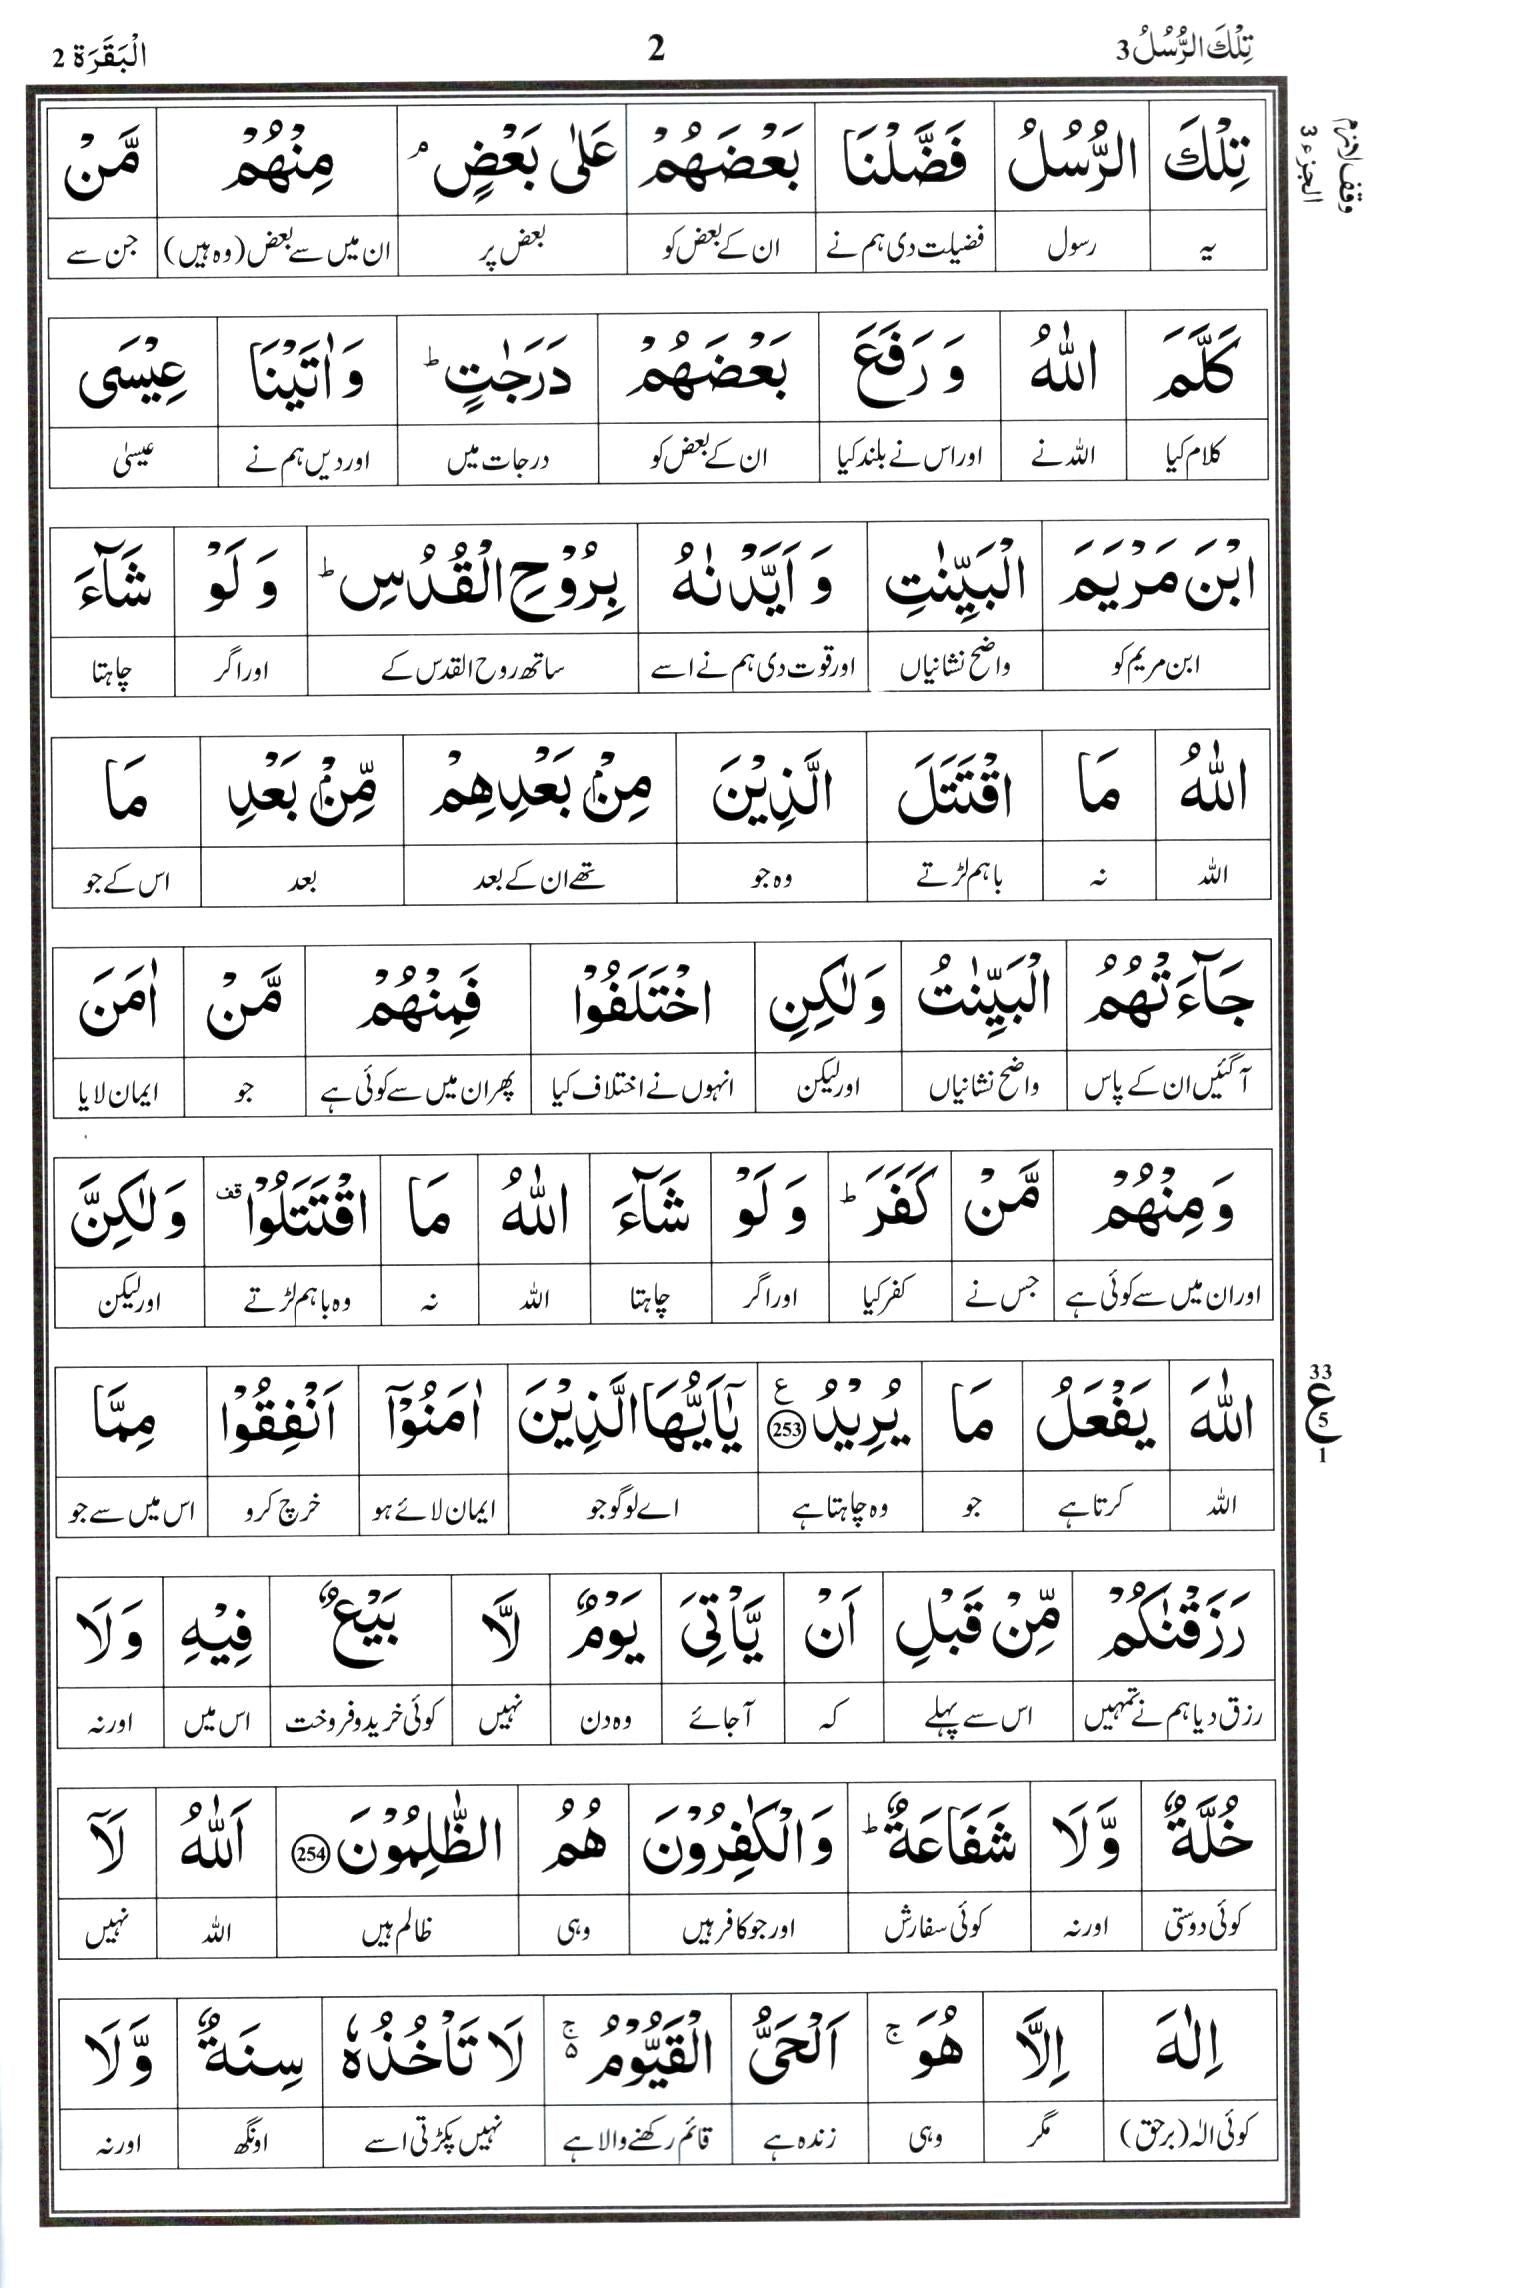 تِلْكَ الرُّسُلُ 3 2 الْبَقَرَة 2
وقف لازم
الجزء 3
تِلْكَ الرُّسُلُ فَضَّلْنَا بَعْضَهُمْ عَلٰى بَعْضٍ ۘ مِنْهُمْ مَّنْ
یہ رسول فضیلت دی ہم نے ان کے بعض کو بعض پر ان میں سے بعض (وہ ہیں) جن سے
كَلَّمَ اللّٰهُ وَ رَفَعَ بَعْضَهُمْ دَرَجٰتٍ ؕ وَ اٰتَيْنَا عِيْسَى
کلام کیا اللہ نے اور اس نے بلند کیا ان کے بعض کو درجات میں اور دیں ہم نے عیسیٰ
ابْنَ مَرْيَمَ الْبَيِّنٰتِ وَ اَيَّدْنٰهُ بِرُوْحِ الْقُدُسِ ؕ وَ لَوْ شَآءَ
ابن مریم کو واضح نشانیاں اور قوت دی ہم نے اسے ساتھ روح القدس کے اور اگر چاہتا
اللّٰهُ مَا اقْتَتَلَ الَّذِيْنَ مِنْۢ بَعْدِهِمْ مِّنْۢ بَعْدِ مَا
اللہ نہ باہم لڑتے وہ جو تھے ان کے بعد بعد اس کے جو
جَآءَتْهُمُ الْبَيِّنٰتُ وَلٰكِنِ اخْتَلَفُوْا فَمِنْهُمْ مَّنْ اٰمَنَ
آ گئیں ان کے پاس واضح نشانیاں اور لیکن انہوں نے اختلاف کیا پھر ان میں سے کوئی ہے جو ایمان لایا
وَ مِنْهُمْ مَّنْ كَفَرَ ؕ وَ لَوْ شَآءَ اللّٰهُ مَا اقْتَتَلُوْا ۟قف وَلٰكِنَّ
اور ان میں سے کوئی ہے جس نے کفر کیا اور اگر چاہتا اللہ نہ وہ باہم لڑتے اور لیکن
اللّٰهَ يَفْعَلُ مَا يُرِيْدُ ع 253 يٰۤاَيُّهَا الَّذِيْنَ اٰمَنُوْۤا اَنْفِقُوْا مِمَّا
33 ع 5 1
اللہ کرتا ہے جو وہ چاہتا ہے اے لوگو جو ایمان لائے ہو خرچ کرو اس میں سے جو
رَزَقْنٰكُمْ مِّنْ قَبْلِ اَنْ يَّاْتِىَ يَوْمٌ لَّا بَيْعٌ فِيْهِ وَ لَا
رزق دیا ہم نے تمہیں اس سے پہلے کہ آ جائے وہ دن نہیں کوئی خرید و فروخت اس میں اور نہ
خُلَّةٌ وَّ لَا شَفَاعَةٌ ؕ وَ الْكٰفِرُوْنَ هُمُ الظّٰلِمُوْنَ 254 اَللّٰهُ لَاۤ
کوئی دوستی اور نہ کوئی سفارش اور جو کافر ہیں وہی ظالم ہیں اللہ نہیں
اِلٰهَ اِلَّا هُوَ ۚ اَلْحَىُّ الْقَيُّوْمُ ۚ۬ لَا تَاْخُذُهٗ سِنَةٌ وَّ لَا
کوئی الہ (برحق) مگر وہی زندہ ہے قائم رکھنے والا ہے نہیں پکڑتی اسے اونگھ اور نہ